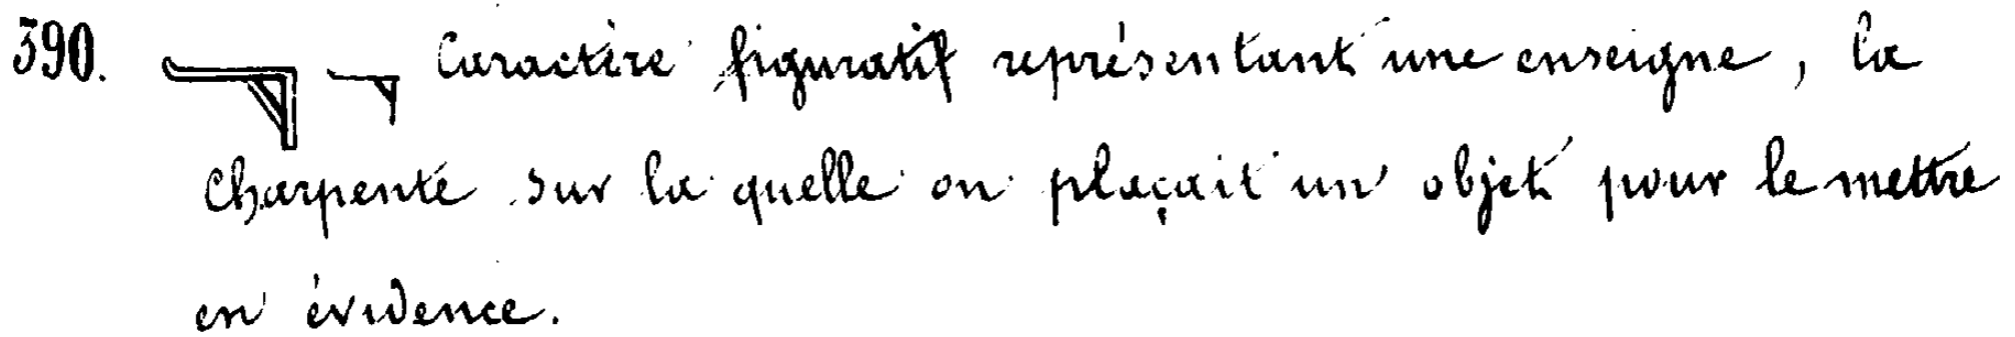 390. Caractère figuratif représentant une enseigne, la
charpente sur la quelle on plaçait un objet pour le mettre
en évidence.